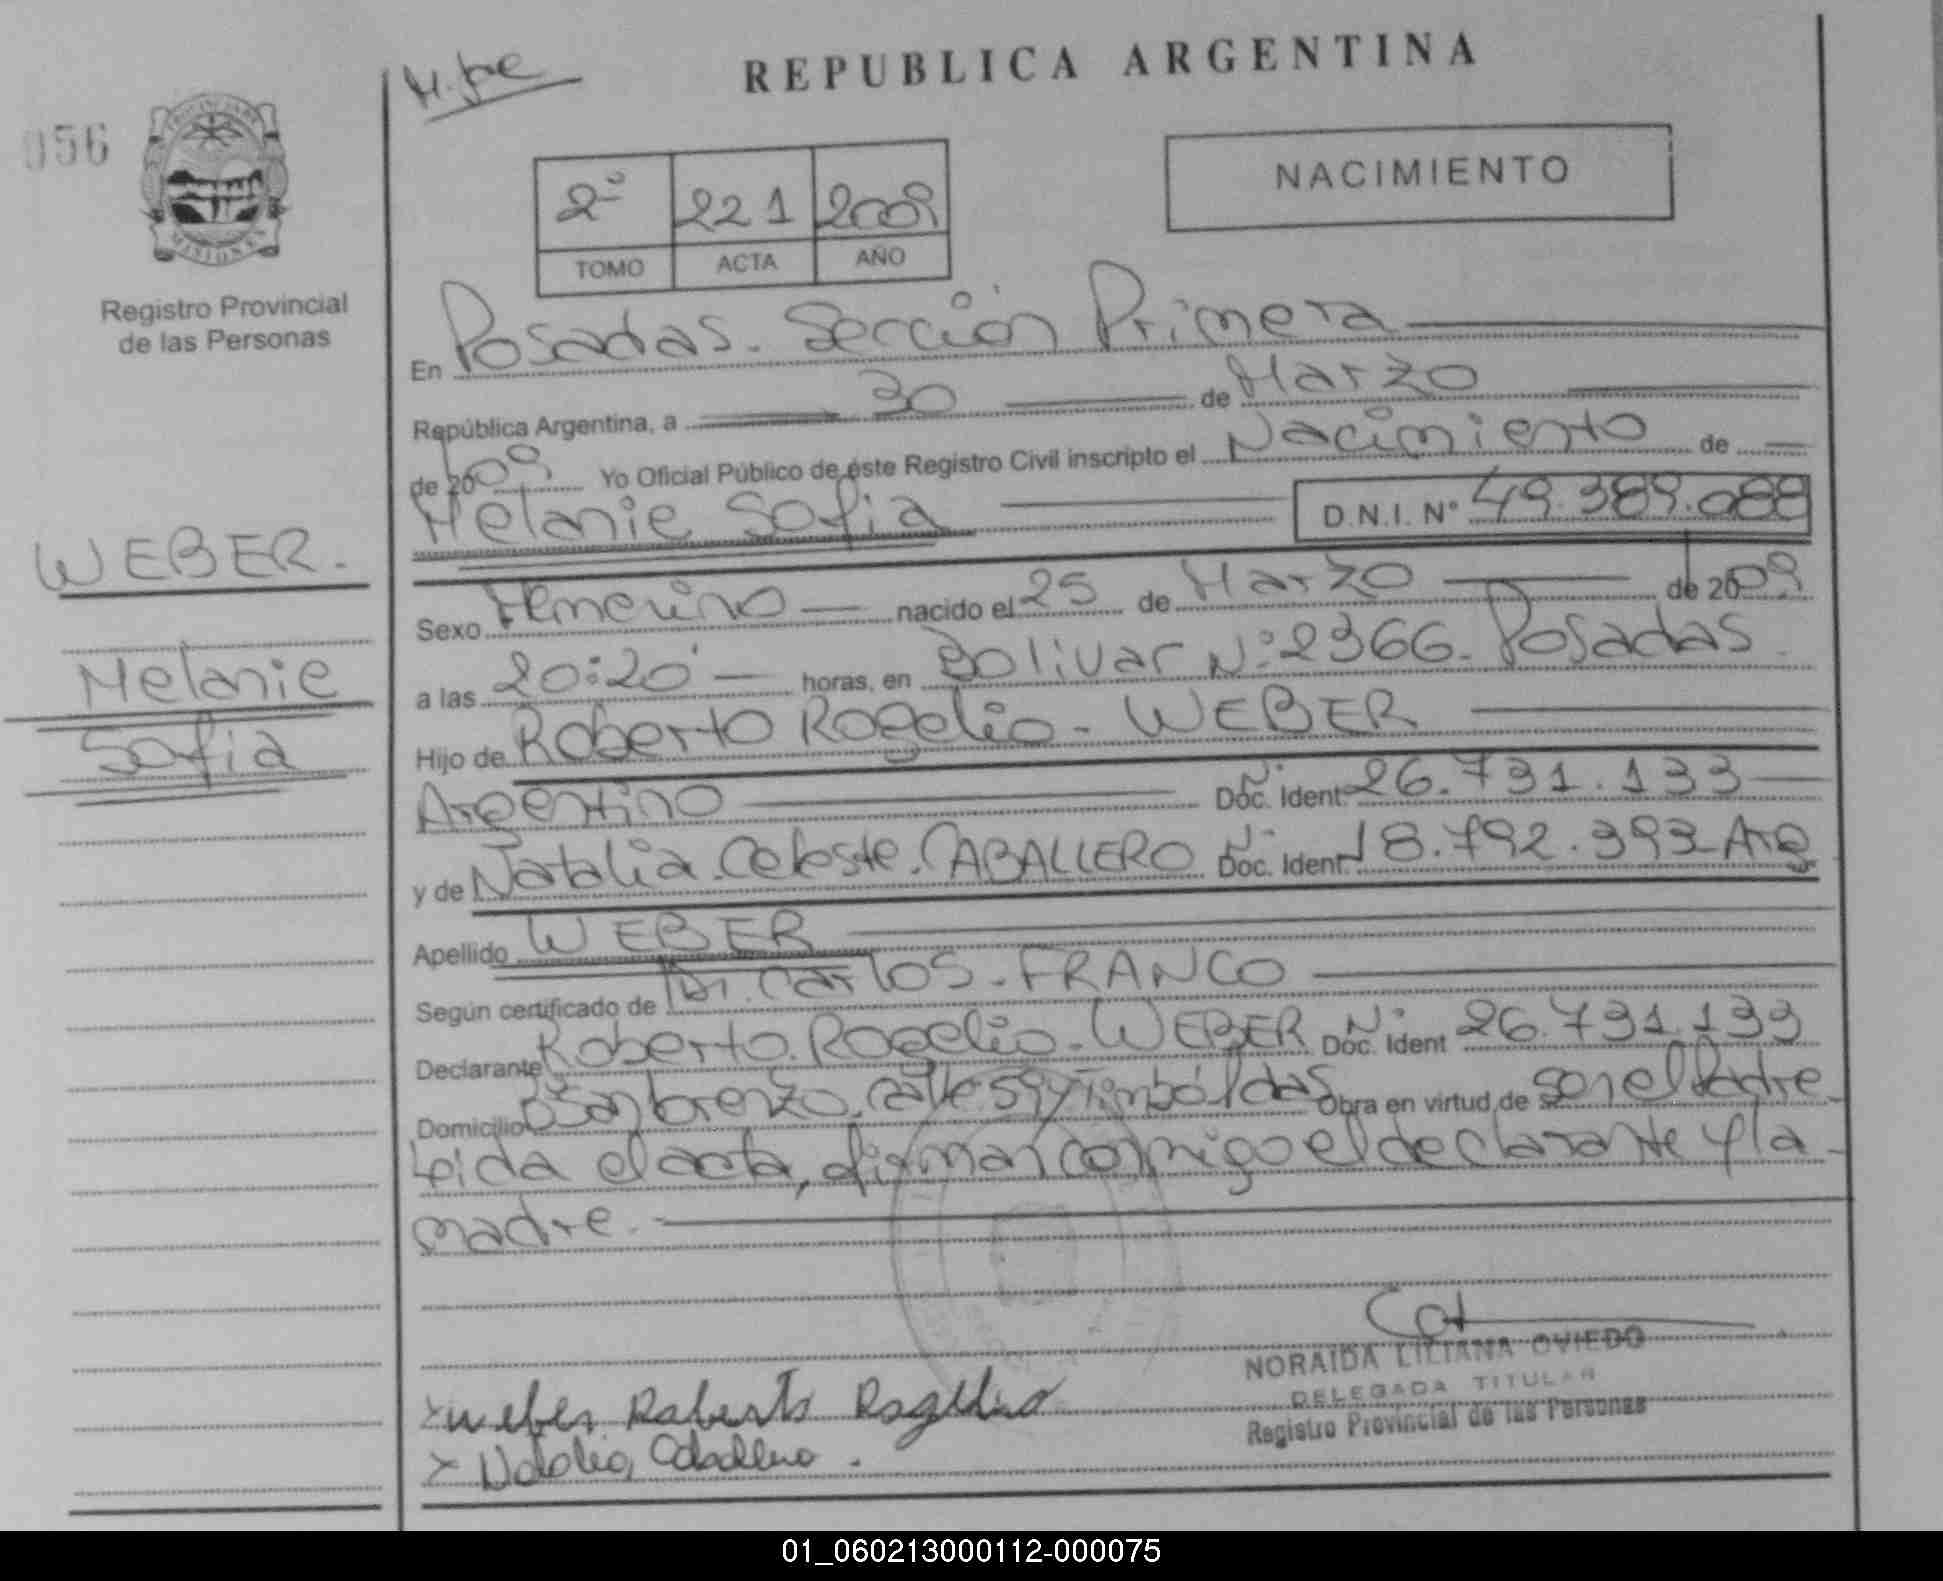 REPUBLICA ARGENTINA
056
PROVINCIA DE
MISIONES
Registro Provincial
de las Personas
NACIMIENTO
2º 221 2009
TOMO ACTA AÑO
En Posadas. Sección Primera
República Argentina, a 30 de Marzo
de 2009 Yo Oficial Público de éste Registro Civil inscripto el Nacimiento de
Melanie Sofia D.N.I. Nº 49.389.088
WEBER.
Melanie
Sofia
Sexo Femenino nacido el 25 de Marzo de 2009
a las 20:20' horas, en Bolivar Nº: 2366. Posadas.
Hijo de Roberto Rogelio. WEBER
Argentino Doc. Ident. 26.731.133
y de Natalia. Celeste. CABALLERO Doc. Ident. 18.792.393 Arg
Apellido WEBER
Según certificado de Dr. Carlos. FRANCO
Declarante Roberto. Rogelio. WEBER Doc. Ident 26.731.133
Domicilio Obra en virtud de ser el Padre.
Leida el acta, firman conmigo el declarante y la
madre.
NORAIDA LILIANA OVIEDO
DELEGADA TITULAR
Registro Provincial de las Personas
Weber Roberto Rogelio
Natalia Caballero.
01_060213000112-000075